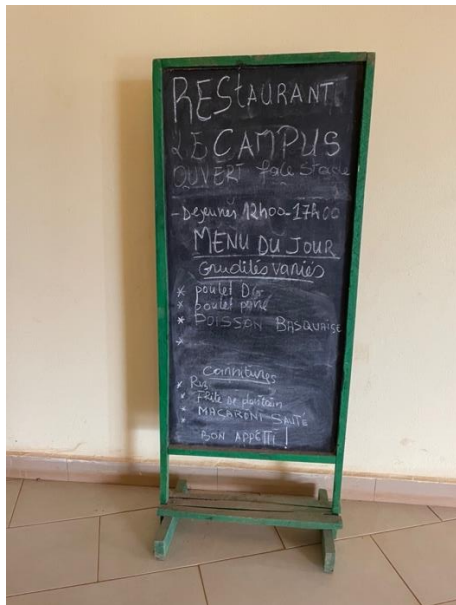 RESTAURANT
LE CAMPUS
OUVERT face Stade
- Dejeunés 12h00-17h00
MENU DU JOUR
Crudités Variés
* poulet DG
* poulet pané
* POISSON BASQUAISE
*
Garnitures
* Riz
* Frite de plantain
* MACARONI SAUTÉ
BON APPÉTTI !